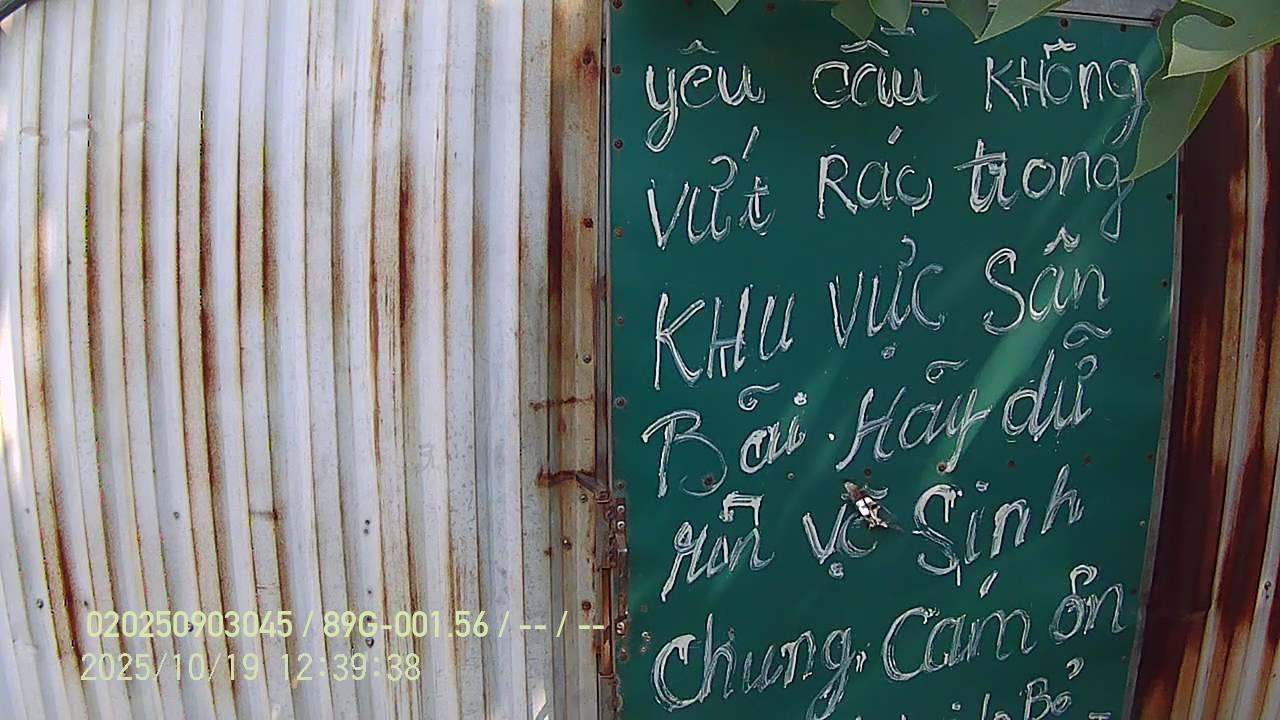 yêu cầu KHÔng
vứt Rác trong
KHU vực Sân
Bãi. Hãy dữ
rìn vệ Sinh
Chung, Cám ơn
Bỏ
020250903045 / 89G-001.56 / -- / --
2025/10/19 12:39:38